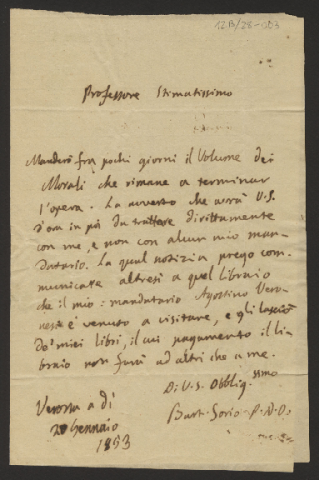 12B/28-003
Professore Stimatissimo
Manderò fra pochi giorni il Volume dei
Morali che rimane a terminar
l'opera. La avverto che avrà V.S.
d'ora in poi da trattare dirittamente
con me, e non con alcun mio man-
datario. La qual notizia prego com-
municare altresì a quel libraio
che il mio mandatario Agostino Vero-
nesi è venuto a visitare, e gli lasciò
de' miei libri, il cui pagamento il li-
braio non farà ad altri che a me.
Di V.S. Obblig.ssimo
Verona a dì
Bart. Sorio P.D.O.
Gennaio
1853